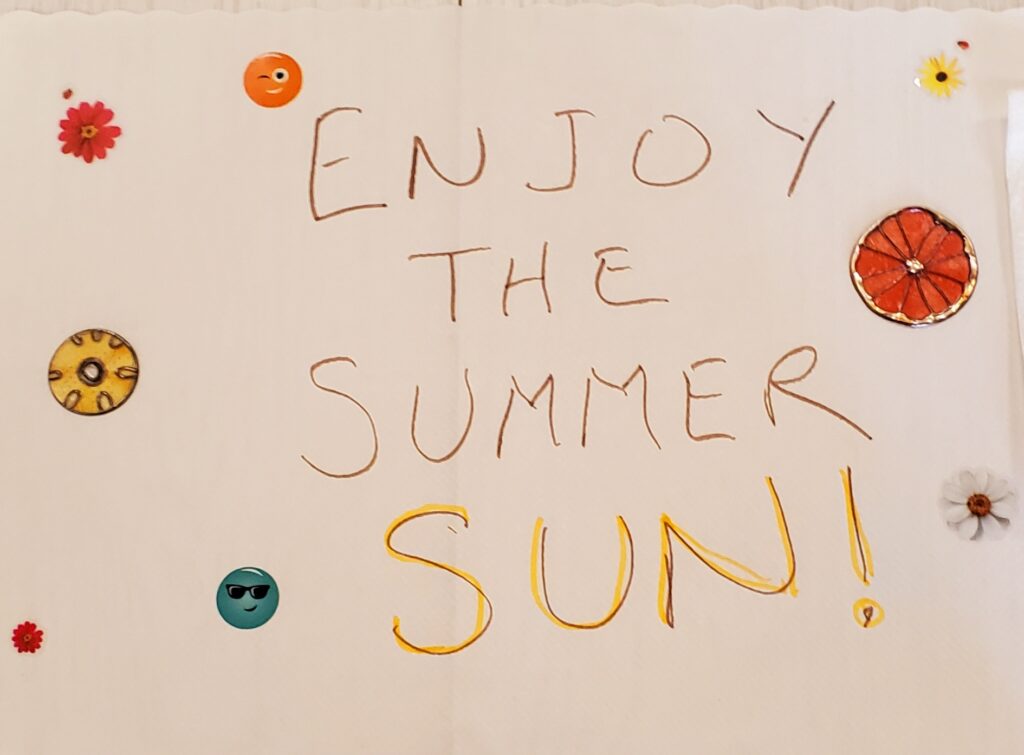 ENJOY
THE
SUMMER
SUN!